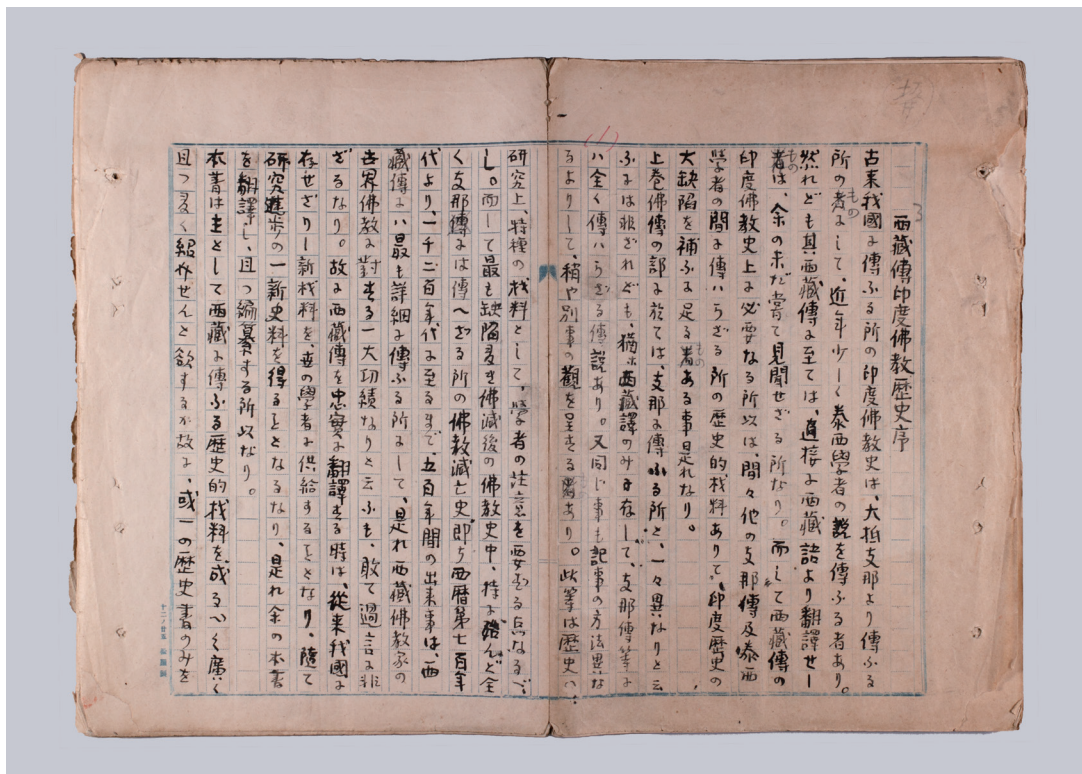 西藏傳印度佛教歷史序
古来我國に傳ふる所の印度佛教史は、大抵支那より傳ふる
所の者にして、近年少しく泰西學者の説を傳ふる者あり。
もの
然れども其西藏傳に至ては、直接に西藏語より翻譯せし
者は、余の未だ嘗て見聞せざる所なり。而して西藏傳の
もの
印度佛教史上に必要なる所以は、間々他の支那傳及泰西
學者の間に傳ハらざる所の歴史的材料ありて、印度歴史の
大缺陷を補ふに足る者ある事是れなり。
もの
上巻佛傳の部に於ては、支那に傳ふる所と、一々異なりと云
ふには非ざれども、猶ホ西藏譯のみ存在して、支那傳等に
ハ全く傳ハらざる傳説あり。又同じ事も記事の方法異な
るよりして、稍や別事の觀を呈する者あり。此等は歴史の
研究上、特種の材料として、學者の注意を要する点なるべ
し。而して最も缺陷多き佛滅後の佛教史中、特に殆んど全
く支那傳には傳へざる所の佛教滅亡史即ち西暦第七百年
代より、一千二百年代に至るまで、五百年間の出来事は、西
藏傳にハ最も詳細に傳ふる所にして、是れ西藏佛教家の
世界佛教に對する一大功績なりと云ふも、敢て過言に非
ざるなり。故に西藏傳を忠實に翻譯する時は、從来我國に
存せざりし新材料を、世の學者に供給することとなり、隨て
研究進歩の一新史料を得ることとなるなり、是れ余の本書
を翻譯し、且つ編纂する所以なり。
本書は主として西藏に傳ふる歴史的材料を、成るべく廣く
且つ多く紹介せんと欲するが故に、或一の歴史書のみを